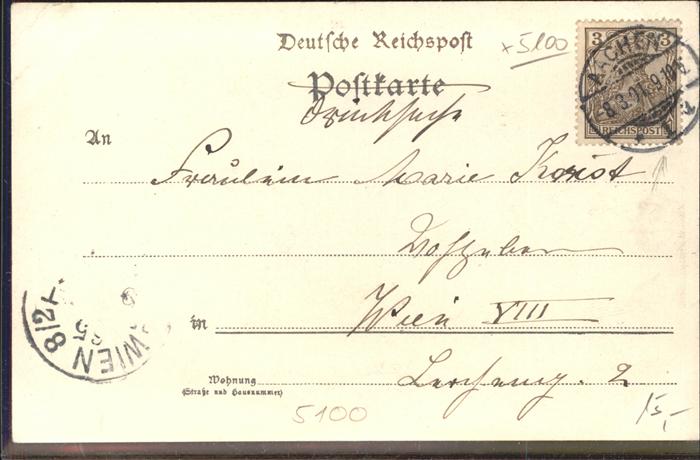 Deutsche Reichspost
× 5100
Postkarte
Drucksache
3 3
REICHSPOST
AACHEN
8.3.01.9-10V.
1
An
Fräulein Marie Horist
Wohlgeboren
in Wien VIII
Wohnung
(Straße und Hausnummer)
Lercheng. 2
WIEN 8/2
5100
15,-